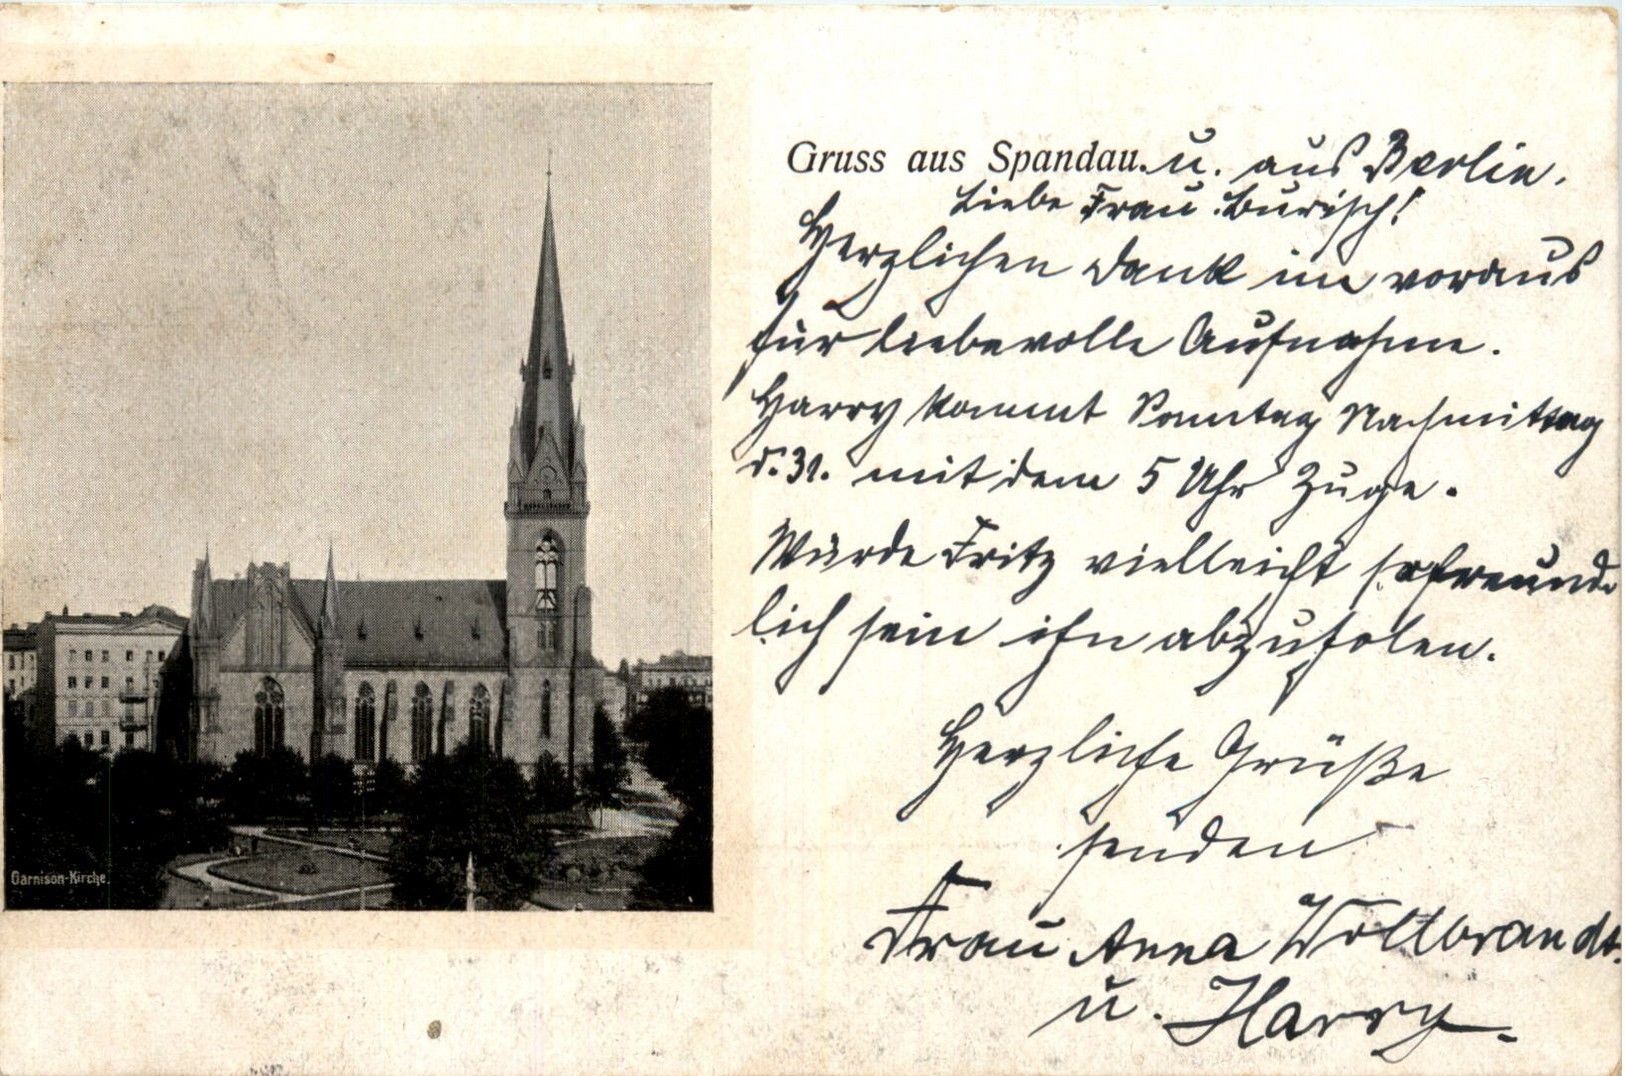 Gruss aus Spandau. u. aus Berlin.
Liebe Frau Burisch!
Herzlichen Dank im voraus
für liebevolle Aufnahme.
Harry kommt Sonntag Nachmittag
d. 31. mit dem 5 Uhr Zuge.
Würde Fritz vielleicht so freund-
lich sein ihn abzuholen.
Herzliche Grüße
senden
Frau Anna Woltbrandt.
u. Harry.
Garnison-Kirche.